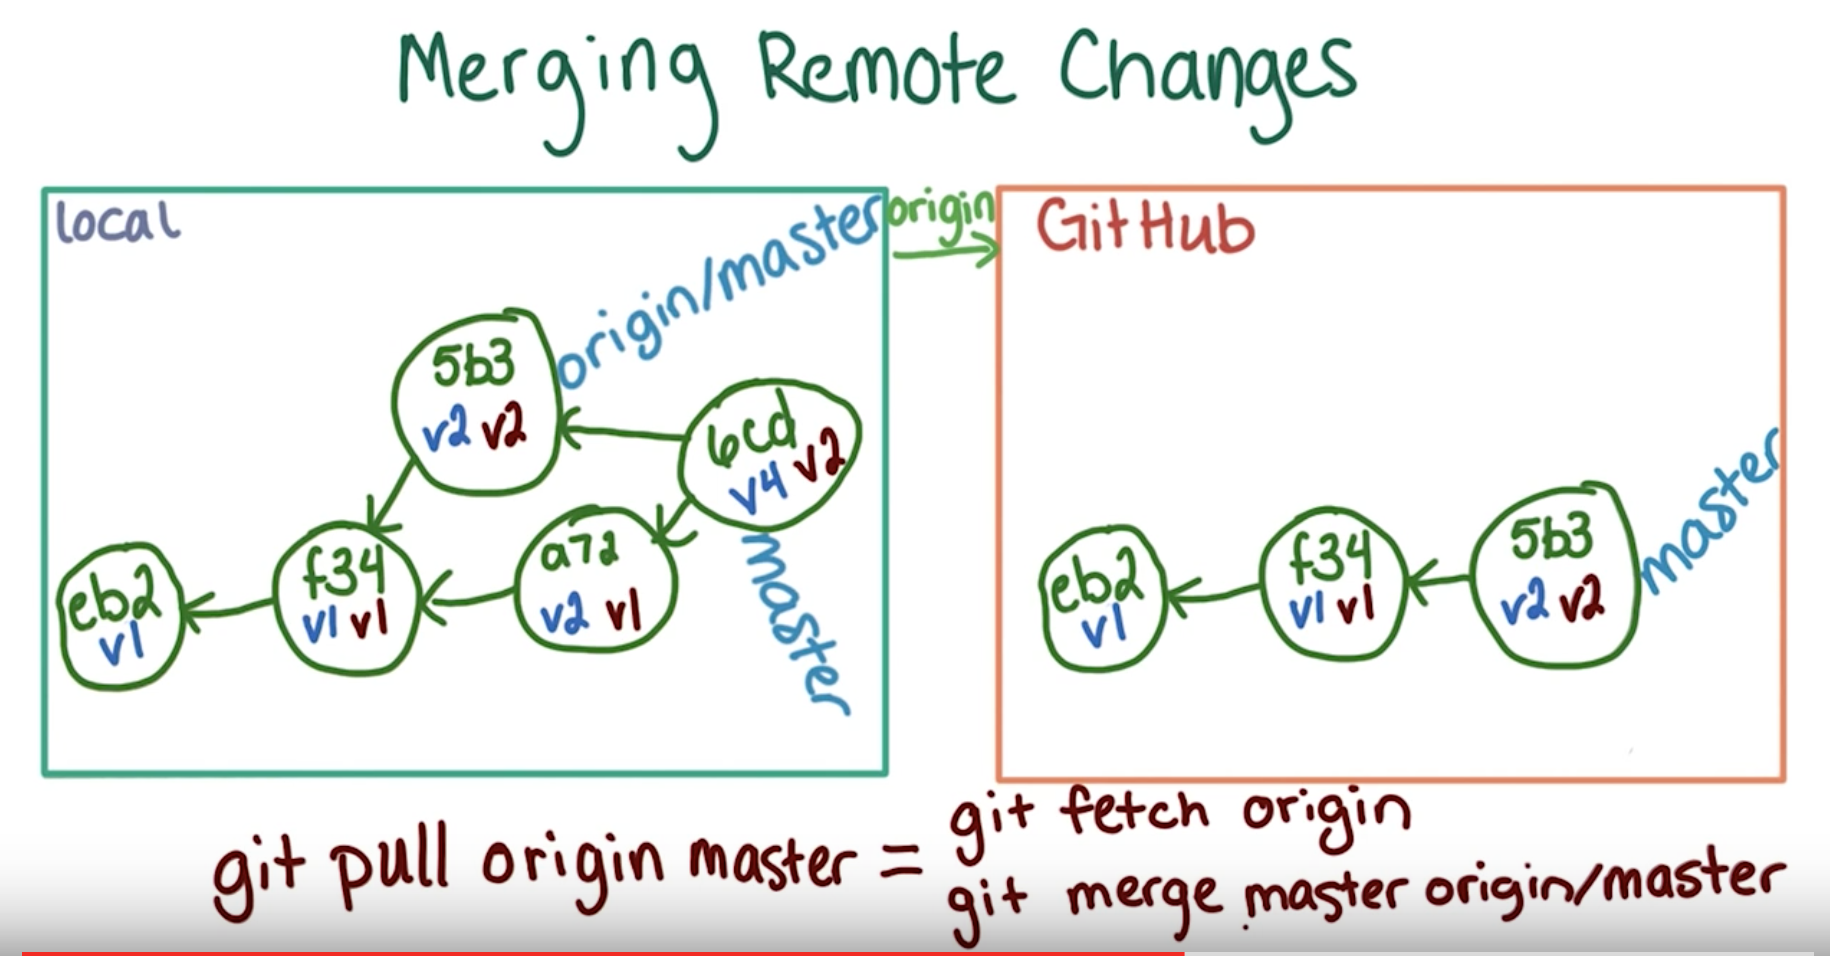 Merging Remote Changes
local
origin/master
origin
GitHub
5b3
v2 v2
6cd
v4 v2
eb2
v1
f34
v1 v1
a72
v2 v1
master
eb2
v1
f34
v1 v1
5b3
v2 v2
master
git pull origin master = git fetch origin
git merge master origin/master